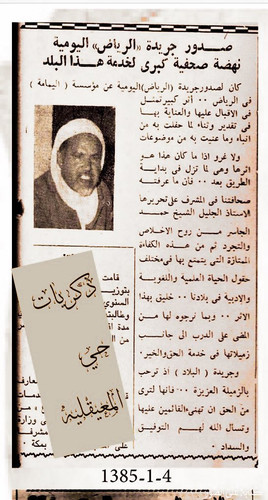 صدور جريدة «الرياض» اليومية
نهضة صحفية كبرى لخدمة هذا البلد
كان لصدور جريدة (الرياض) اليومية عن مؤسسة ( اليمامة )
في الرياض ٠٠ أثر كبير تمثل
في الاقبال عليها والعناية بها
في تقدير وثناء لما حفلت به من
انباء وما عنيت به من موضوعات
ولا غرو اذا ما كان هذا هو
اثرها وهي لما تزل في بداية
الطريق بعد ٠٠ فان ما عرفته
صحافتنا في المشرف على تحريرها
الاستاذ الجليل الشيخ حمد
الجاسر من روح الاخلاص
والتجرد ثم من هذه الكفاءة
الممتازة التي يتمتع بها في مختلف
حقول الحياة العلمية واللغوية
والادبية في بلادنا ٠٠ خليق بهذا
الاثر ٠٠ وبما نرجوه لها من
المضي على الدرب الى جانب
زميلاتها في خدمة الحق والخير ٠
وجريدة ( البلاد ) اذ ترحب
بالزميلة العزيزة ٠٠ فانها لترى
من الحق ان تهنىء القائمين عليها
وتسأل الله لهم التوفيق
والسداد ٠
قامت
بتوزيع
السنوي
مدة
ذكريات
حي
المعيقلية
1385-1-4